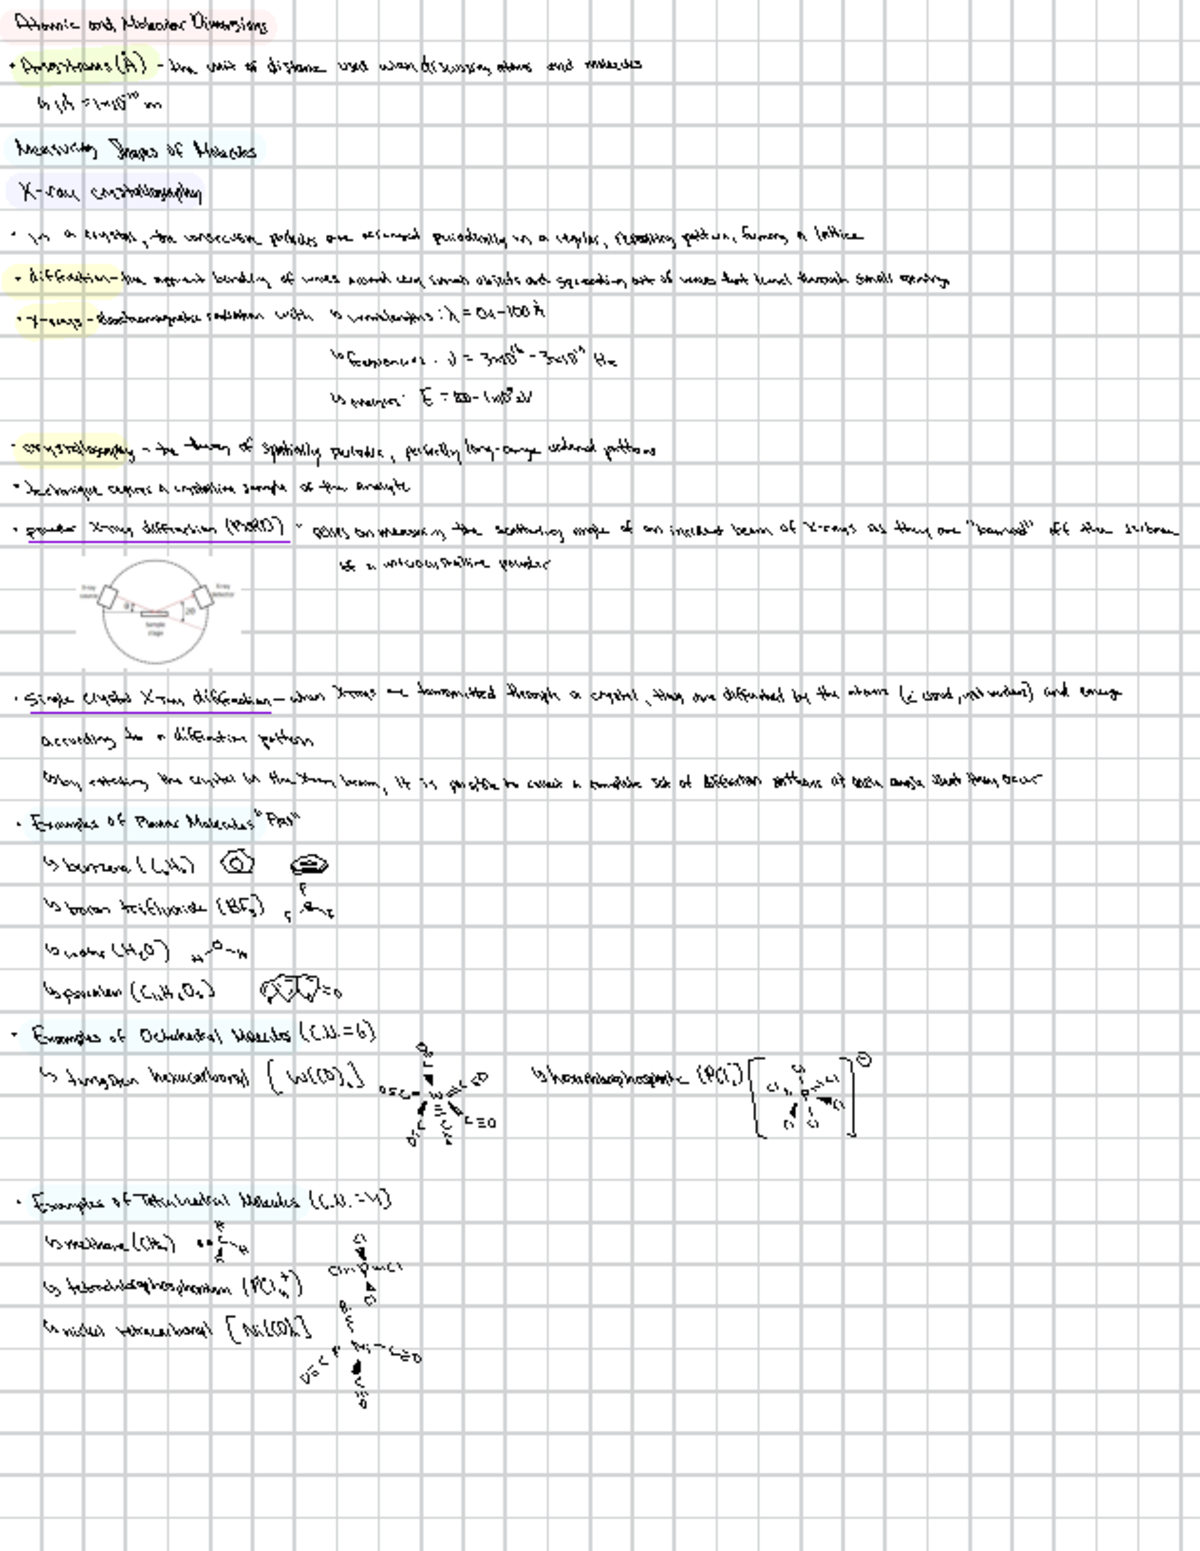 Atomic and Molecular Dimensions
• Angstroms (Å) - the unit of distance used when discussing atoms and molecules
↳ 1Å = 1×10⁻¹⁰ m
Measuring Shapes of Molecules
X-ray crystallography
• In a crystal, the consecutive particles are arranged periodically in a regular, repeating pattern, forming a lattice
• diffraction - the apparent bending of waves around very small objects and spreading out of waves that travel through small openings
• X-rays - electromagnetic radiation with ↳ wavelengths: λ = 0.1-100 Å
↳ frequencies: ν = 3×10¹⁶ - 3×10¹⁹ Hz
↳ energies: E =
• crystallography - the theory of spatially periodic, perfectly long-range ordered patterns
• technique requires a crystalline sample of the analyte
• powder X-ray diffraction (PXRD) - relies on measuring the scattering angle of an incident beam of X-rays as they are "bounced" off the surface
of a microcrystalline powder
X-ray source
X-ray detector
θ
2θ
Sample stage
• Single crystal X-ray diffraction - when X-rays are transmitted through a crystal, they are diffracted by the atoms (e⁻ cloud, not nucleus) and emerge
according to a diffraction pattern
↳ by rotating the crystal in the X-ray beam, it is possible to collect a complete set of diffraction patterns at each angle that they occur
• Examples of Planar Molecules "Flat"
↳ benzene (C₆H₆)
↳ boron trifluoride (BF₃)
F
B
F F
↳ water (H₂O)
H O H
↳ (C₁₁H₆O₃)
=O
• Examples of Octahedral Molecules (C.N.=6)
↳ tungsten hexacarbonyl [W(CO)₆]
O≡C W C≡O
C≡O
↳ (PCl₆⁻)
Cl Cl Cl P Cl Cl Cl ⊖
• Examples of Tetrahedral Molecules (C.N.=4)
↳ methane (CH₄)
H C H
↳ tetrachlorophosphonium (PCl₄⁺)
Cl
Cl P Cl
Cl
↳ nickel tetracarbonyl [Ni(CO)₄]
O≡C Ni C≡O
C≡O